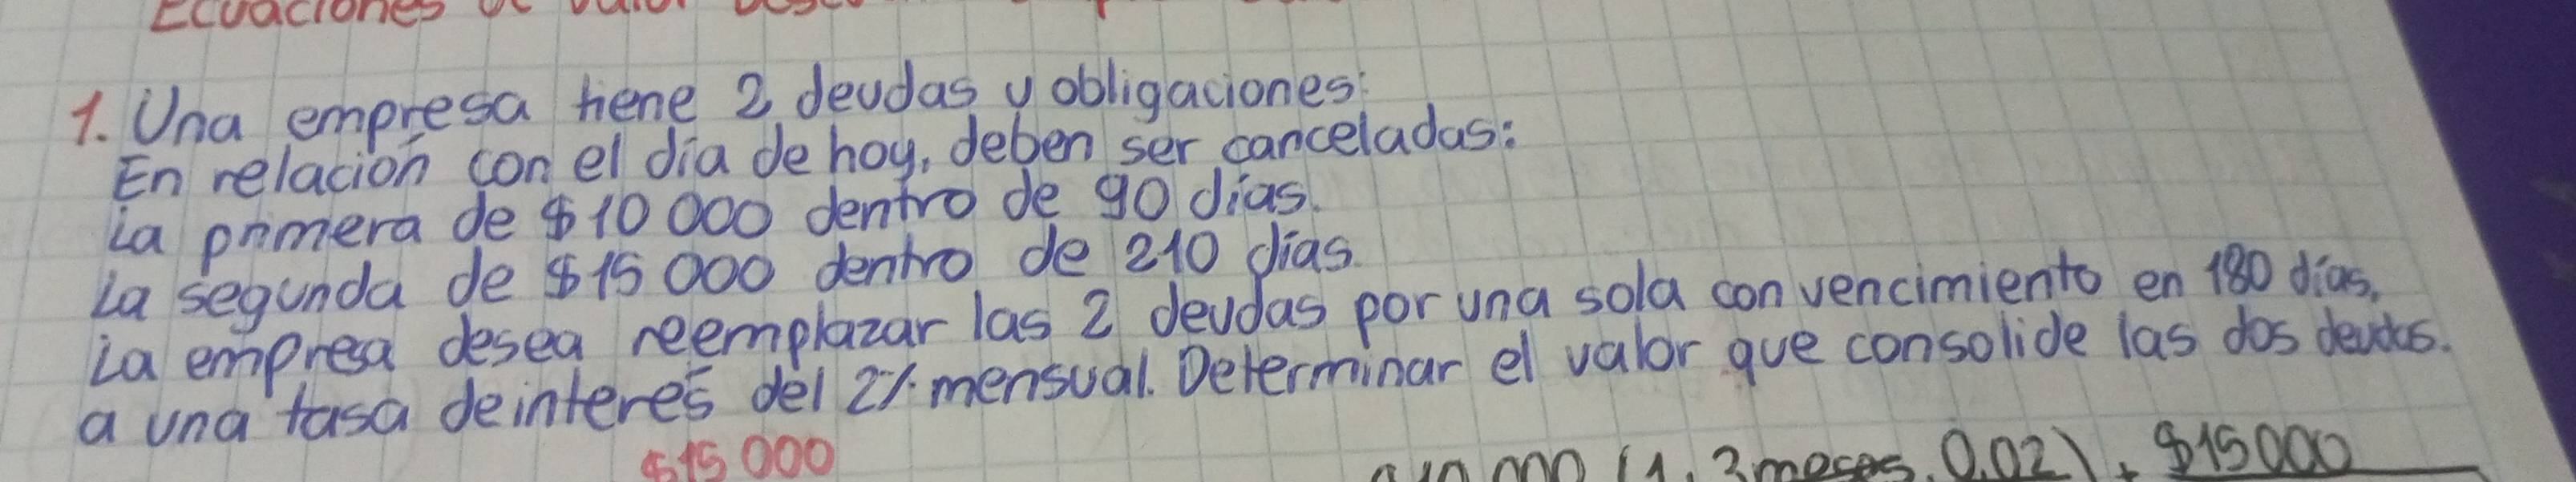 Ecuaciones de valor
1. Una empresa tiene 2 deudas y obligaciones:
En relación con el día de hoy, deben ser canceladas:
La primera de $10 000 dentro de 90 días.
La segunda de $15 000 dentro de 210 días.
La empresa desea reemplazar las 2 deudas por una sola con vencimiento en 180 días,
a una tasa de interés del 2% mensual. Determinar el valor que consolide las dos deudas.
$15 000
(1. 3 meses. 0.02) + $15000